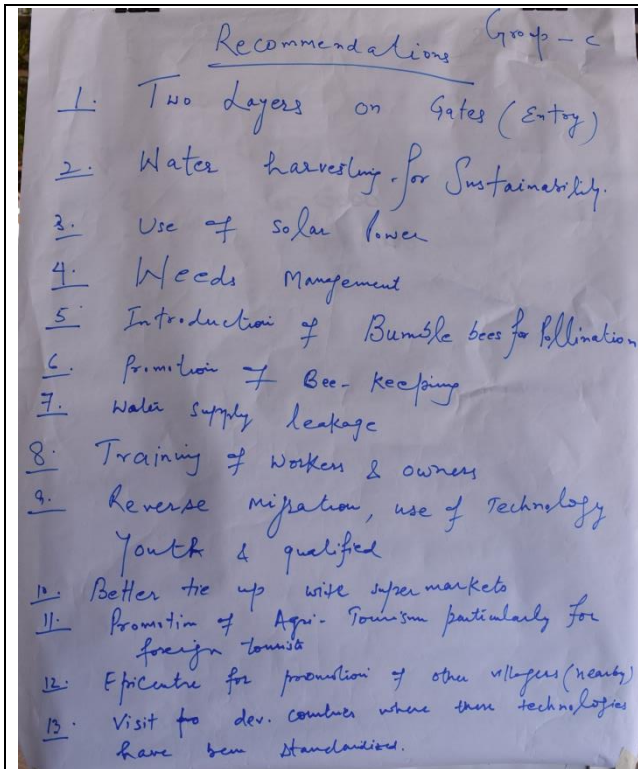 Group - C
Recommendations
1. Two Layers on Gates (Entry)
2. Water harvesting for Sustainability.
3. Use of solar Power
4. Weeds Management
5 Introduction of Bumble bees for Pollination
6. Promotion of Bee-keeping
7. Water supply leakage
8. Training of workers & owners
9. Reverse migration, use of Technology
Youth & qualified
10. Better tie up with super markets
11. Promotion of Agri-Tourism particularly for
foreign tourists
12. Epicentre for promotion of other villagers (nearby)
13. Visit to dev. countries where these technologies
have been standardised.